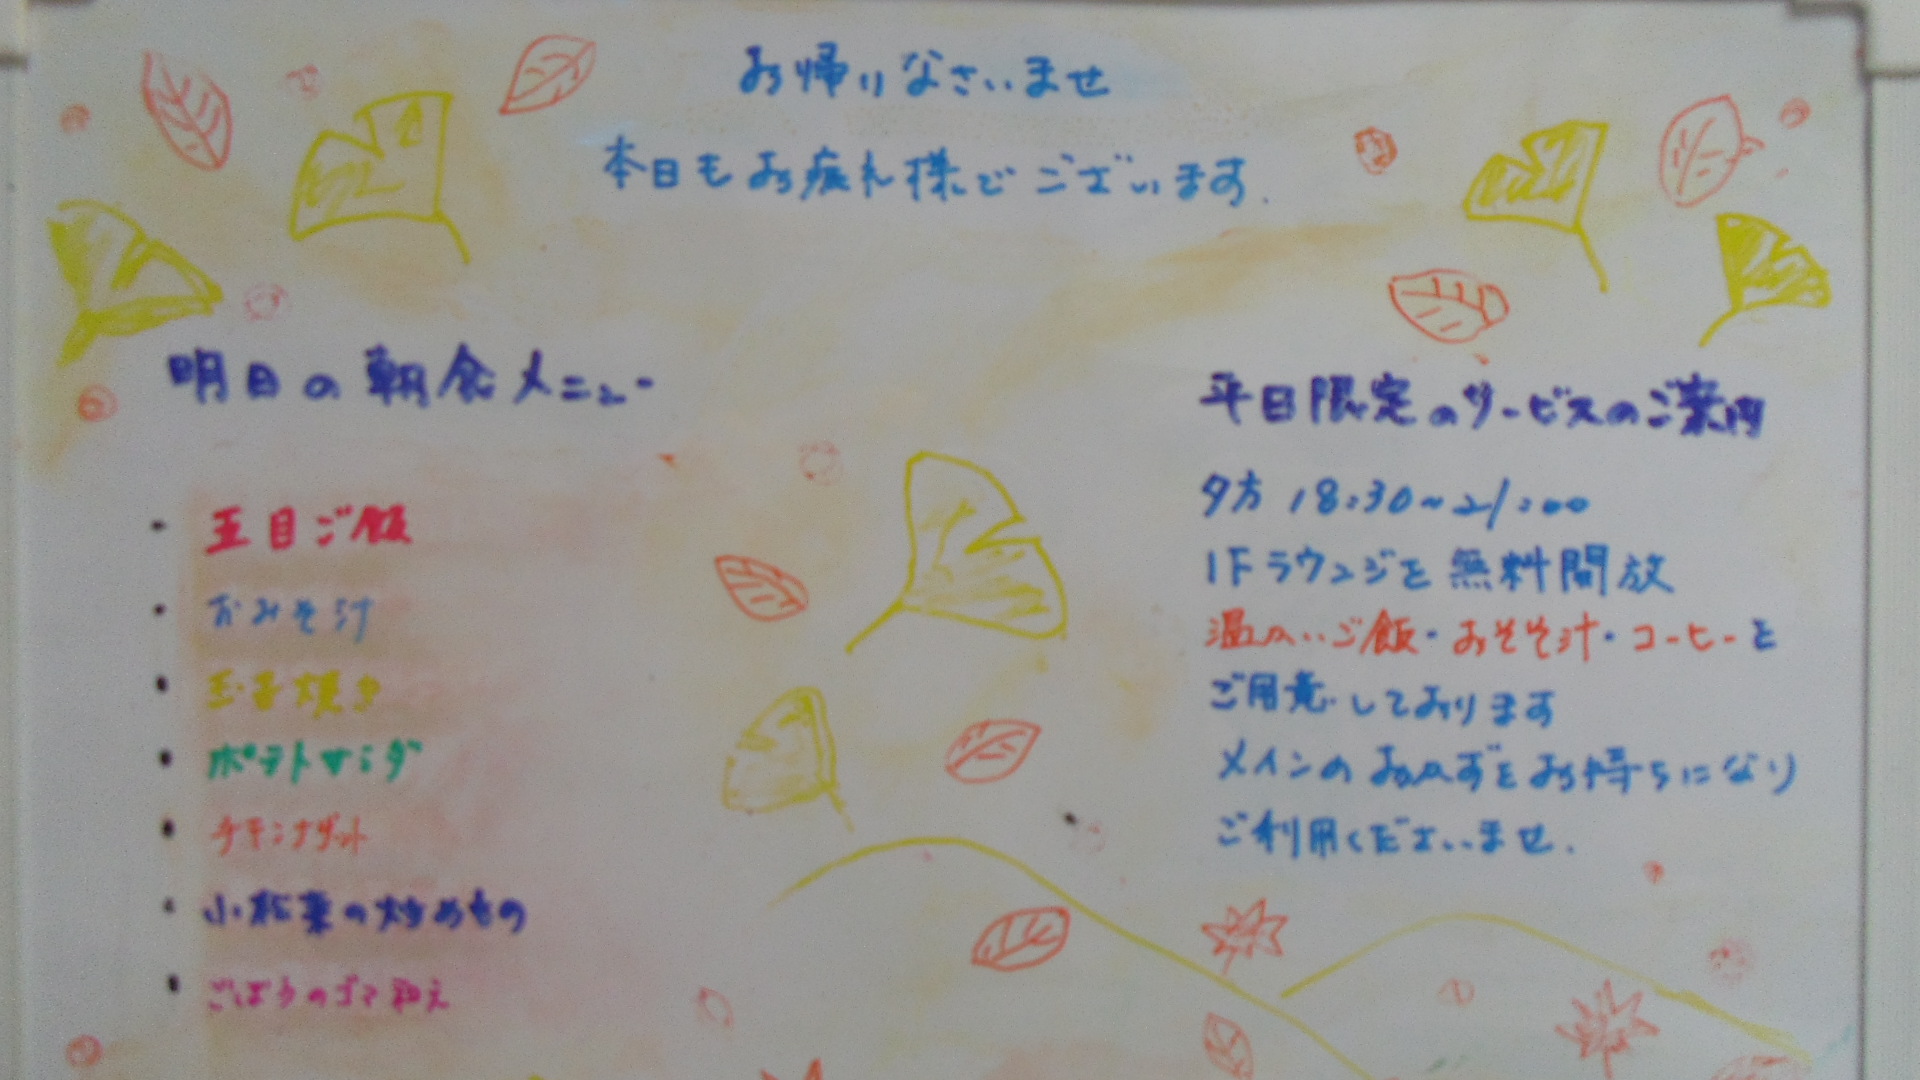 お帰りなさいませ
本日もお疲れ様でございます.
明日の朝食メニュー
・五目ご飯
・おみそ汁
・玉子焼き
・ポテトサラダ
・チキンナゲット
・小松菜の炒めもの
・ごぼうのゴマ和え
平日限定のサービスのご案内
夕方 18:30~21:00
1Fラウンジを無料開放
温かいご飯・おそそ汁・コーヒーを
ご用意しております
メインのおかずをお持ちになり
ご利用くださいませ.